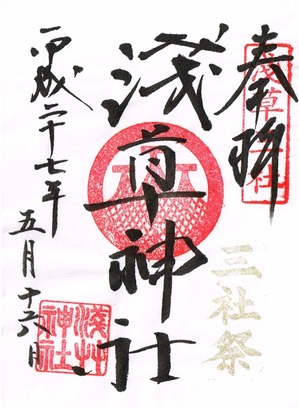 奉拝
浅草神社
三社祭
浅草神社
平成二十七年
五月十六日
浅草神社